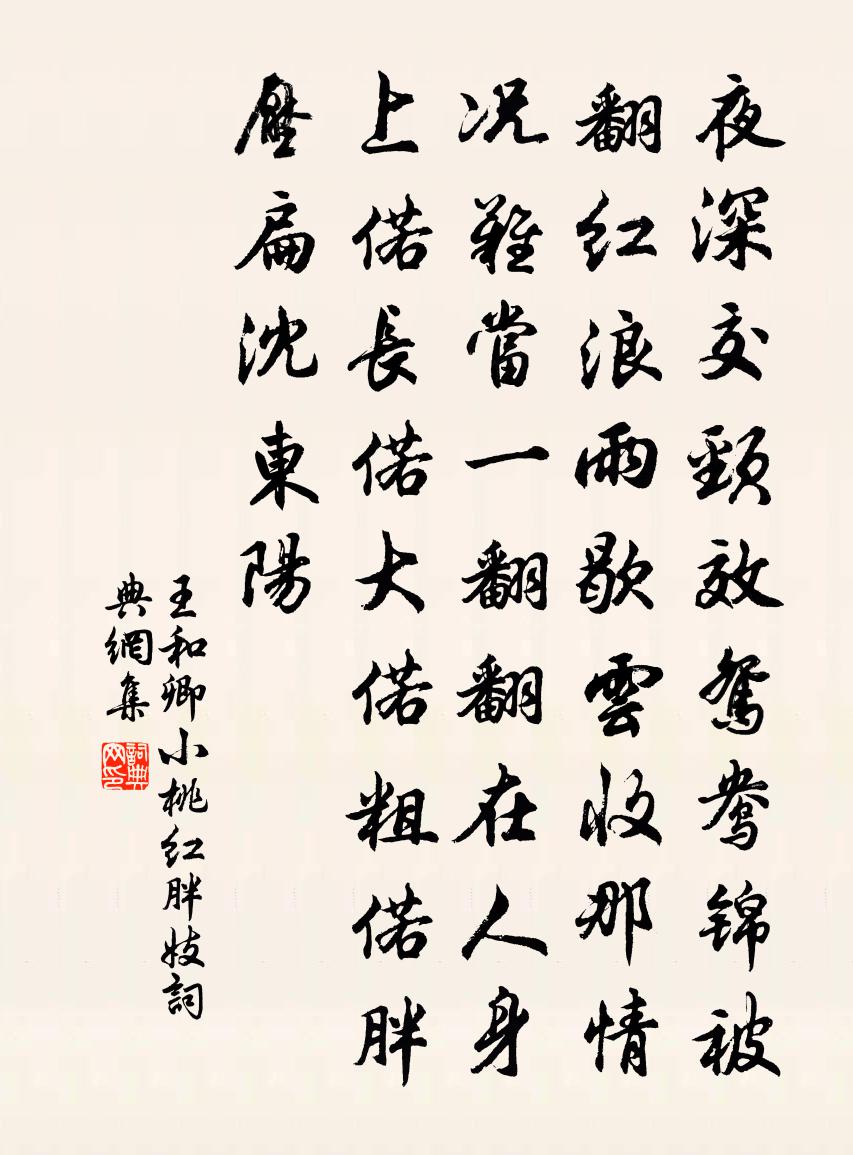 夜深交頸效鴛鴦錦被
翻紅浪雨歇雲收那情
況難當一翻翻在人身
上偌長偌大偌粗偌胖
壓扁沈東陽
王和卿小桃紅胖妓詞
典網集
詞典网印